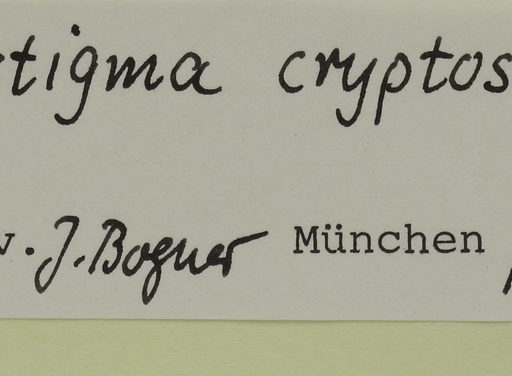 tigma cryptos
v. J. Bogner München